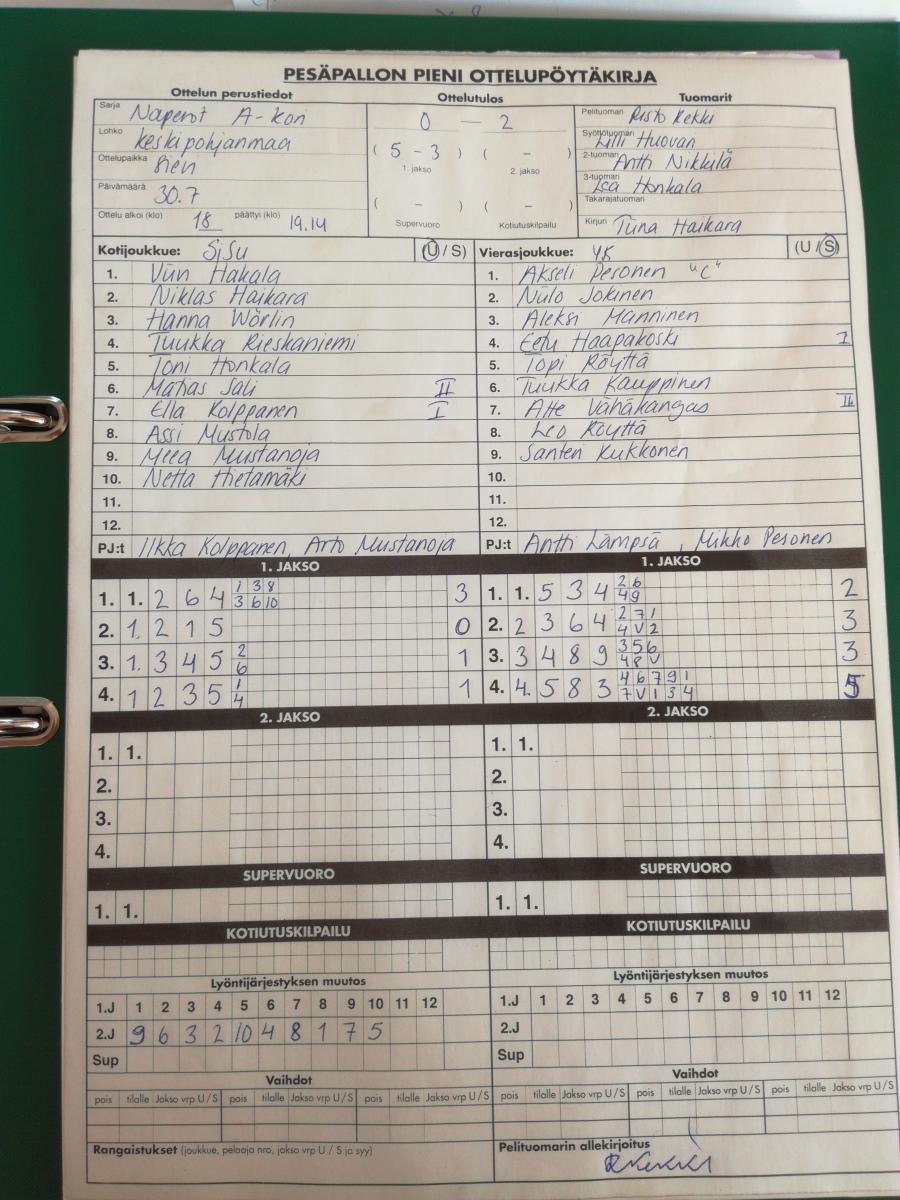 PESÄPALLON PIENI OTTELUPÖYTÄKIRJA
Ottelun perustiedot Ottelutulos Tuomarit
Sarja Naperot A-kon
Lohko keskipohjanmaa
Ottelupaikka
Päivämäärä 30.7
Ottelu alkoi (klo) 18 päättyi (klo) 19.14
0 — 2
( 5 - 3 ) ( - )
1. jakso 2. jakso
( - ) ( - )
Supervuoro Kotiutuskilpailu
Pelituomari Risto Kekki
Syöttötuomari Lilli Huovari
2-tuomari Antti Nikkilä
3-tuomari Lea Honkala
Takarajatuomari
Kirjuri Tiina Haikara
Kotijoukkue: SiSu (U / S)
1. Viin Hakala
2. Niklas Haikara
3. Hanna Wörlin
4. Tuukka Rieskaniemi
5. Toni Honkala
6. Matias Sali II
7. Ella Kolppanen I
8. Assi Mustola
9. Meea Mustanoja
10. Netta Hietamäki
11.
12.
PJ:t Ilkka Kolppanen, Arto Mustanoja
Vierasjoukkue: YK (U / S)
1. Akseli Pesonen "C"
2. Niilo Jokinen
3. Aleksi Manninen
4. Eetu Haapakoski I
5. Topi Röyttä
6. Tuukka Kauppinen
7. Atte Vähäkangas II
8. Leo Röyttä
9. Santeri Kukkonen
10.
11.
12.
PJ:t Antti Lämpsä , Mikko Pesonen
1. JAKSO
1. 1. 2 6 4 1 3 8 3
3 6 10
2. 1. 2 1 5 0
3. 1. 3 4 5 2 1
6
4. 1 2 3 5 1 1
4
1. JAKSO
1. 1. 5 3 4 2 6 2
4 9
2. 2 3 6 4 2 7 1 3
4 V 2
3. 3 4 8 9 3 5 6 3
4 8 V
4. 4. 5 8 3 4 6 7 9 1 5
7 V 1 3 4
2. JAKSO
1. 1.
2.
3.
4.
2. JAKSO
1. 1.
2.
3.
4.
SUPERVUORO
1. 1.
SUPERVUORO
1. 1.
KOTIUTUSKILPAILU
KOTIUTUSKILPAILU
Lyöntijärjestyksen muutos
1.J 1 2 3 4 5 6 7 8 9 10 11 12
2.J 9 6 3 2 10 4 8 1 7 5
Sup
Lyöntijärjestyksen muutos
1.J 1 2 3 4 5 6 7 8 9 10 11 12
2.J
Sup
Vaihdot
pois tilalle Jakso vrp U / S pois tilalle Jakso vrp U / S pois tilalle Jakso vrp U / S
Vaihdot
pois tilalle Jakso vrp U / S pois tilalle Jakso vrp U / S pois tilalle Jakso vrp U / S
Rangaistukset (joukkue, pelaaja nro, jakso vrp U / S ja syy)
Pelituomarin allekirjoitus
RKekki